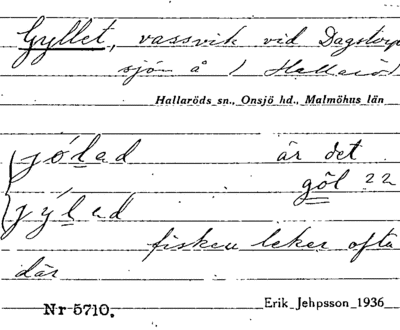 Gyllet, vassvik vid Dagstorp
sjön å / Hallaröd
Hallaröds sn., Onsjö hd., Malmöhus län
jólad är det
göl 22
jýlad
fisken leker ofta
där
Nr 5710. Erik Jehpsson 1936